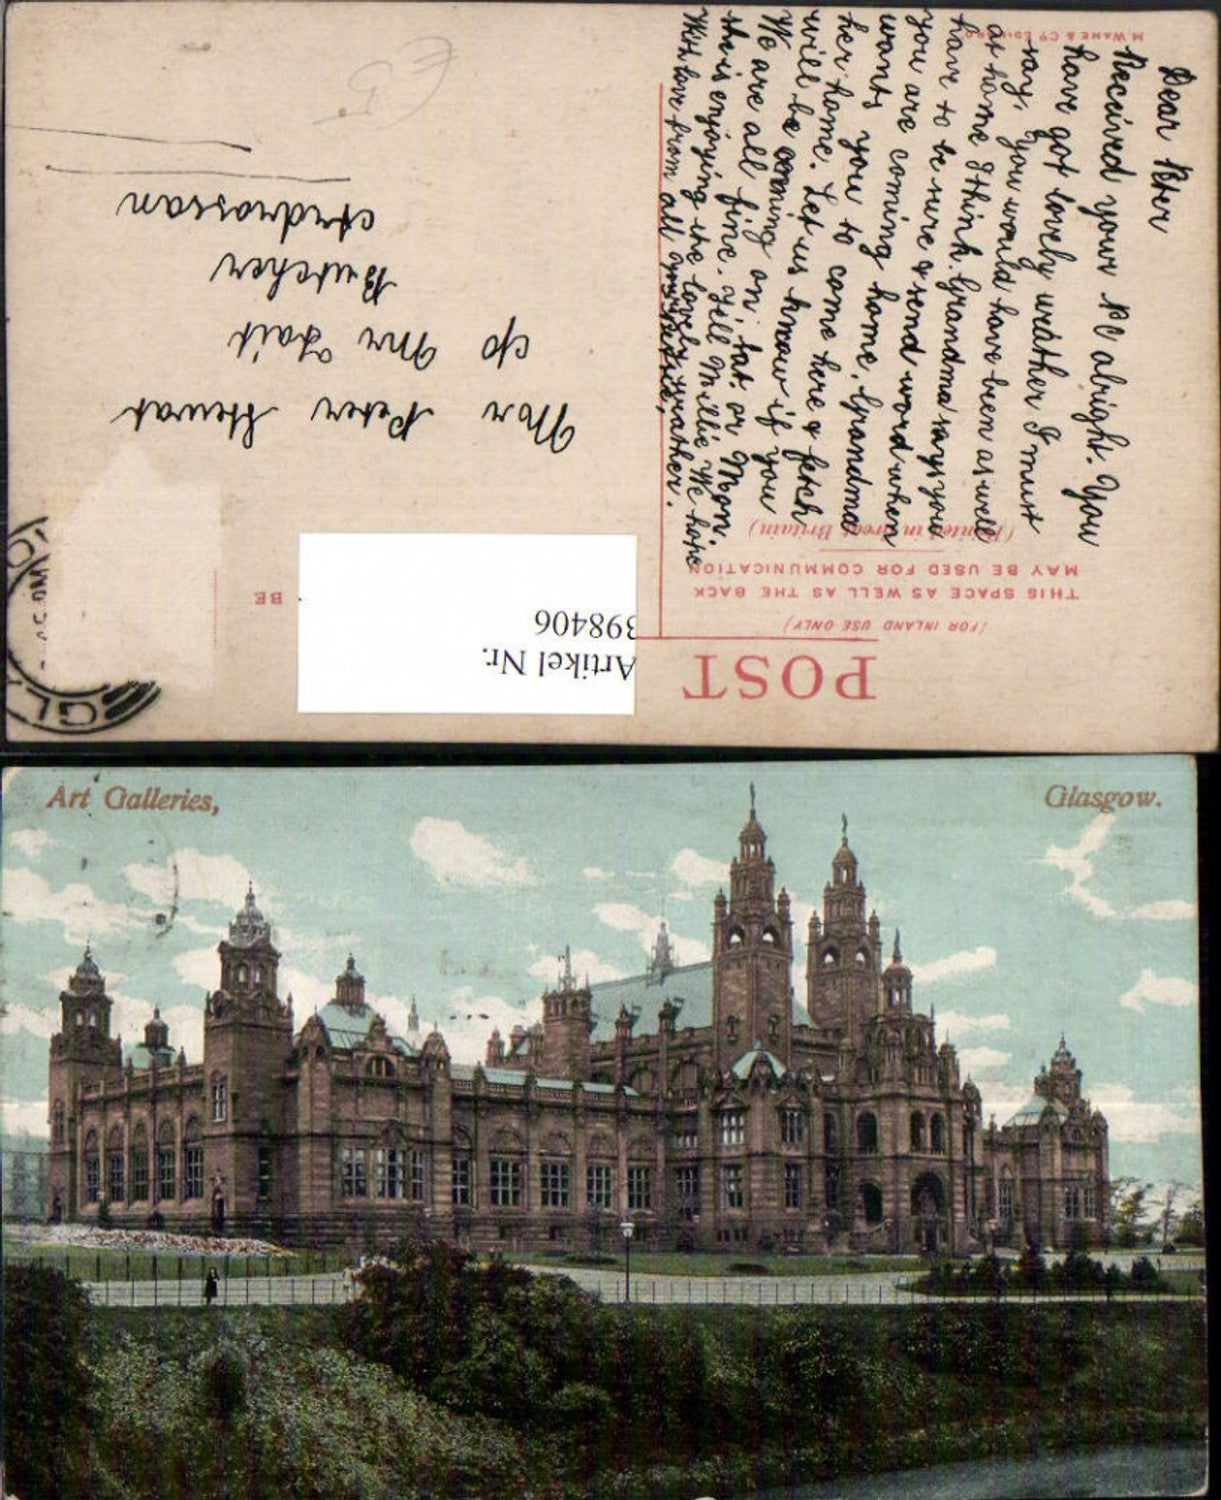 POST
(FOR INLAND USE ONLY)
THIS SPACE AS WELL AS THE BACK
MAY BE USED FOR COMMUNICATION
(Printed in Great Britain)
M. WANE & Co EDINBRO
Dear Peter
Received your PC alright. You
have got lovely weather I must
say, you would have been as well
at home I think. Grandma says you
have to be sure & send word when
you are coming home, Grandma
wants you to come here & fetch
her home. Let us know if you
will be coming on Sat. or Mon.
We are all fine. Tell Millie We hope
she is enjoying the lovely weather.
With love from all
BE
Artikel Nr.
398406
Mr Peter Stewart
c/o Mr Tait
Butcher
Ardrossan
GL
Art Galleries,
Glasgow.